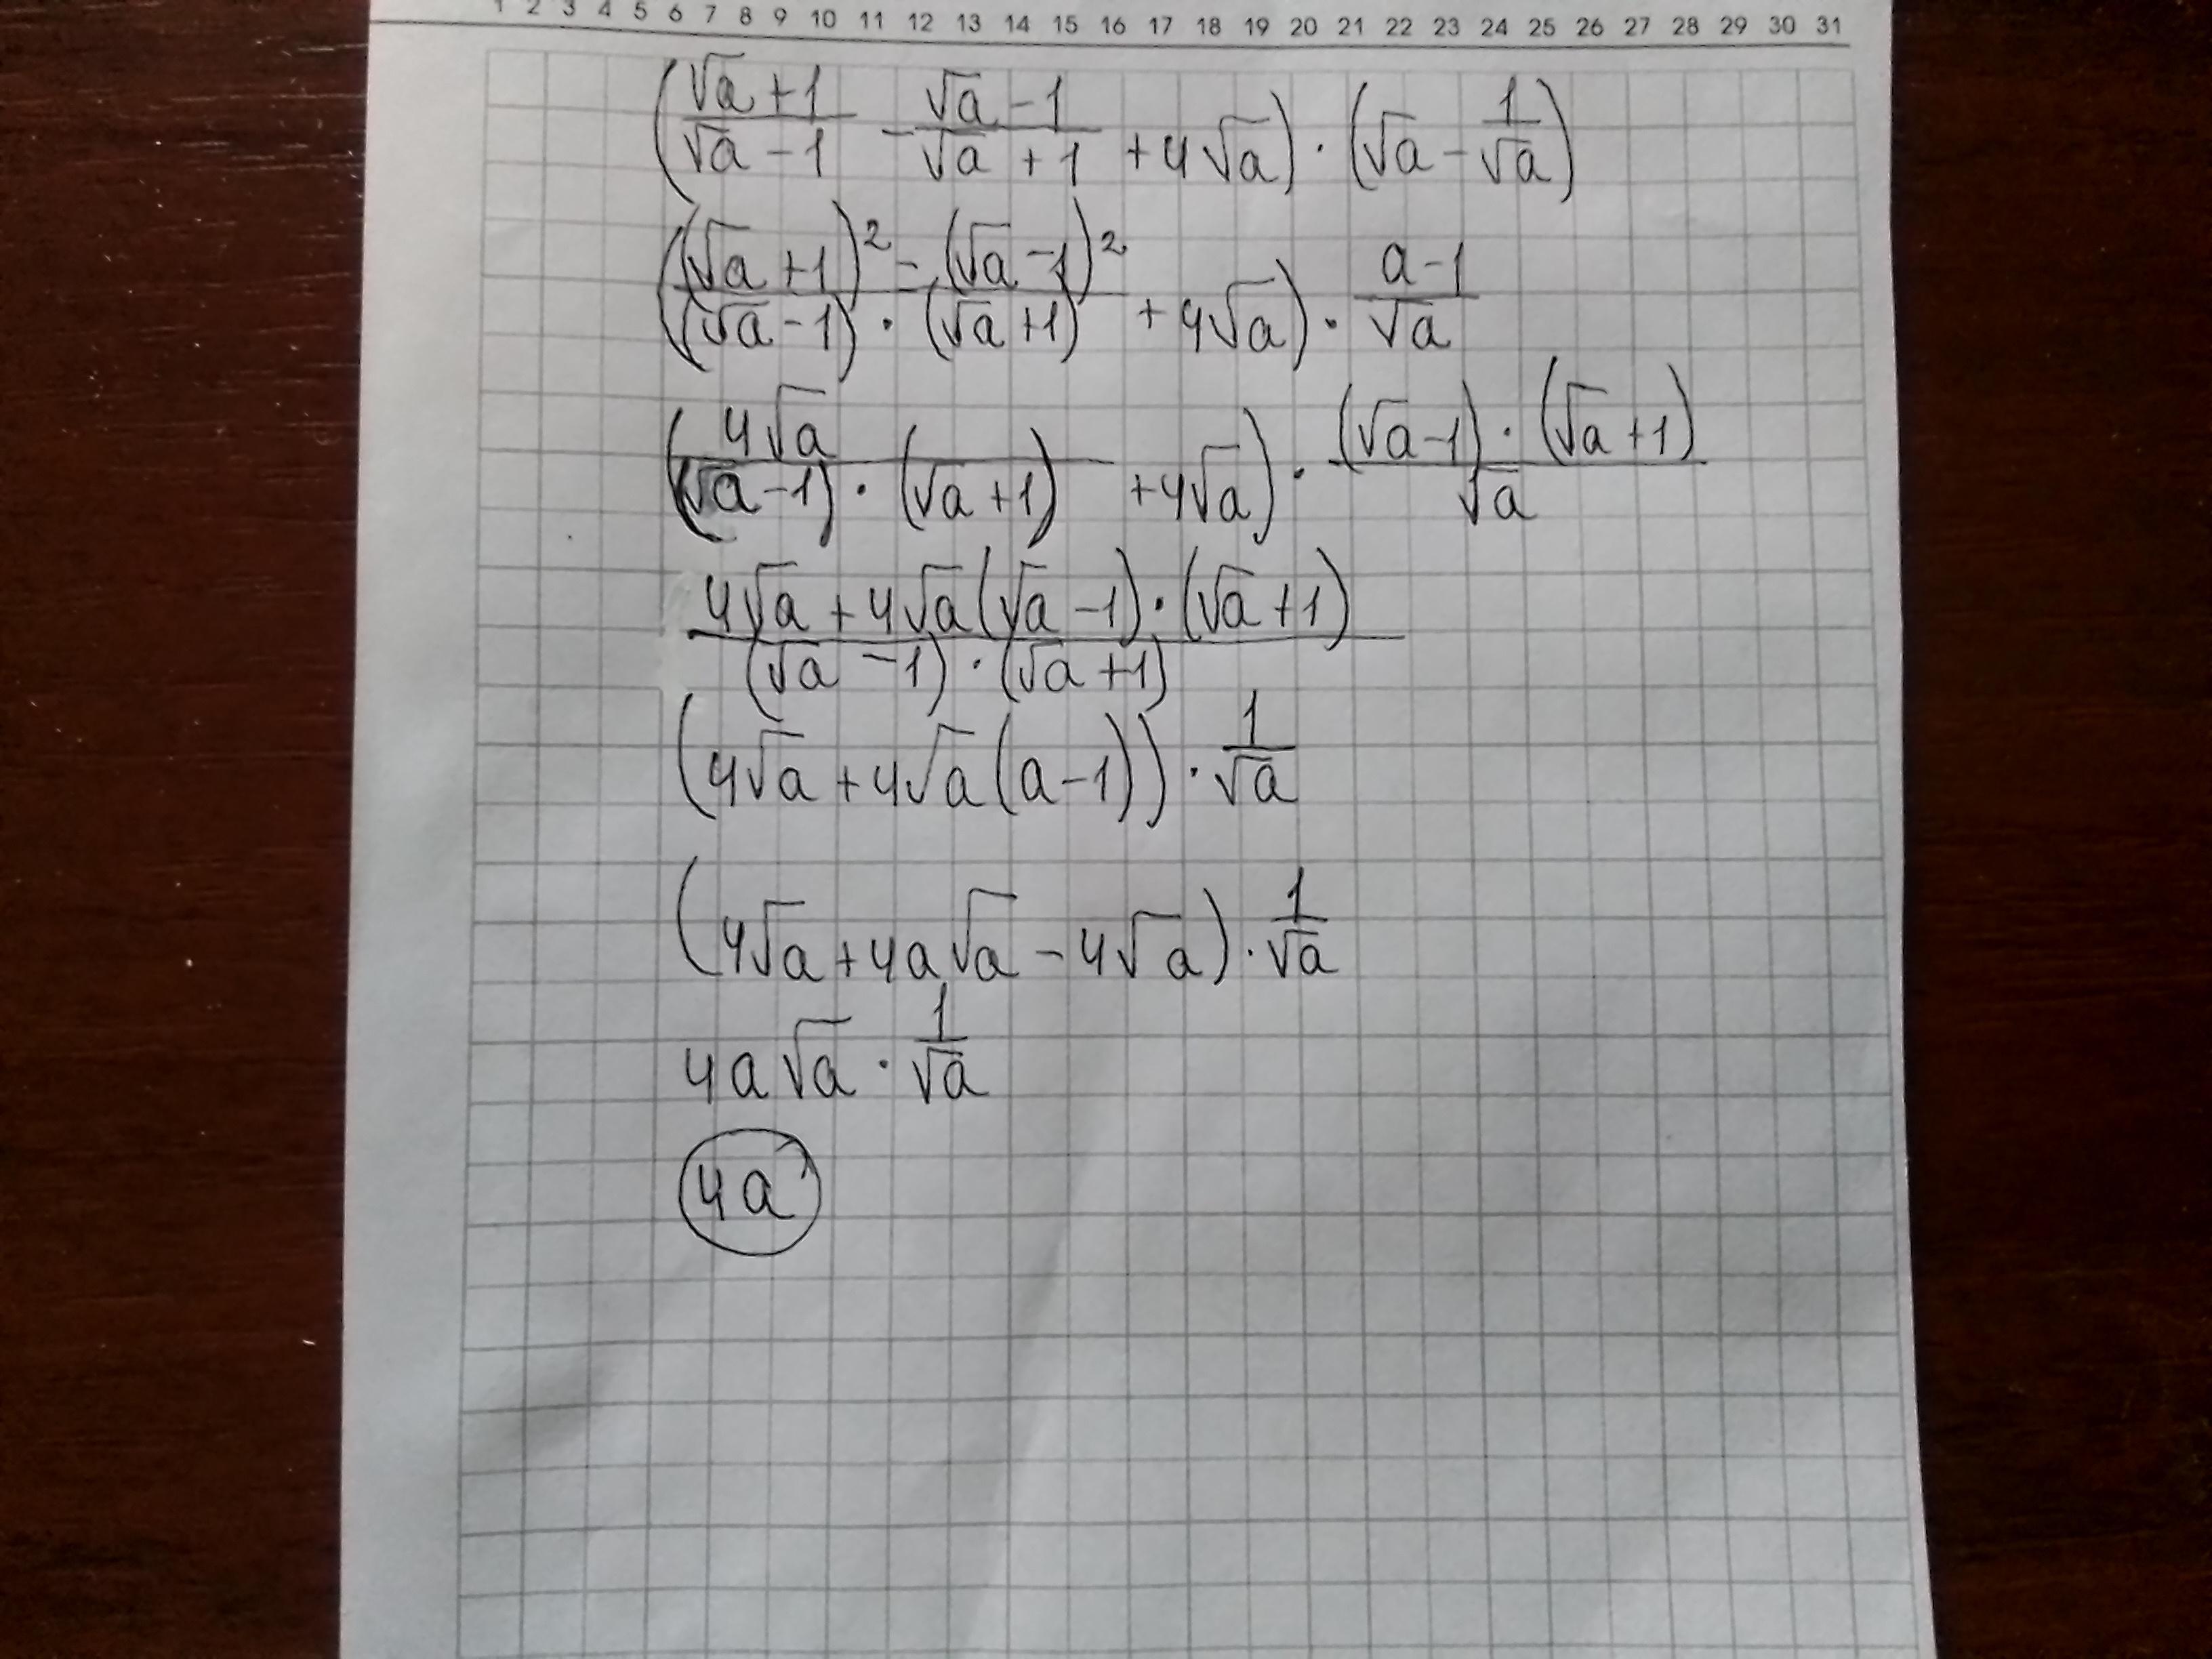 1 2 3 4 5 6 7 8 9 10 11 12 13 14 15 16 17 18 19 20 21 22 23 24 25 26 27 28 29 30 31
(√a+1/√a-1 - √a-1/√a+1 +4√a)·(√a-1/√a)
((√a+1)²-(√a-1)²/(√a-1)·(√a+1) +4√a)·a-1/√a
(4√a/(√a-1)·(√a+1) +4√a)·(√a-1)·(√a+1)/√a
4√a+4√a(√a-1)·(√a+1)/(√a-1)·(√a+1)
(4√a+4√a(a-1))·1/√a
(4√a+4a√a-4√a)·1/√a
4a√a·1/√a
4a